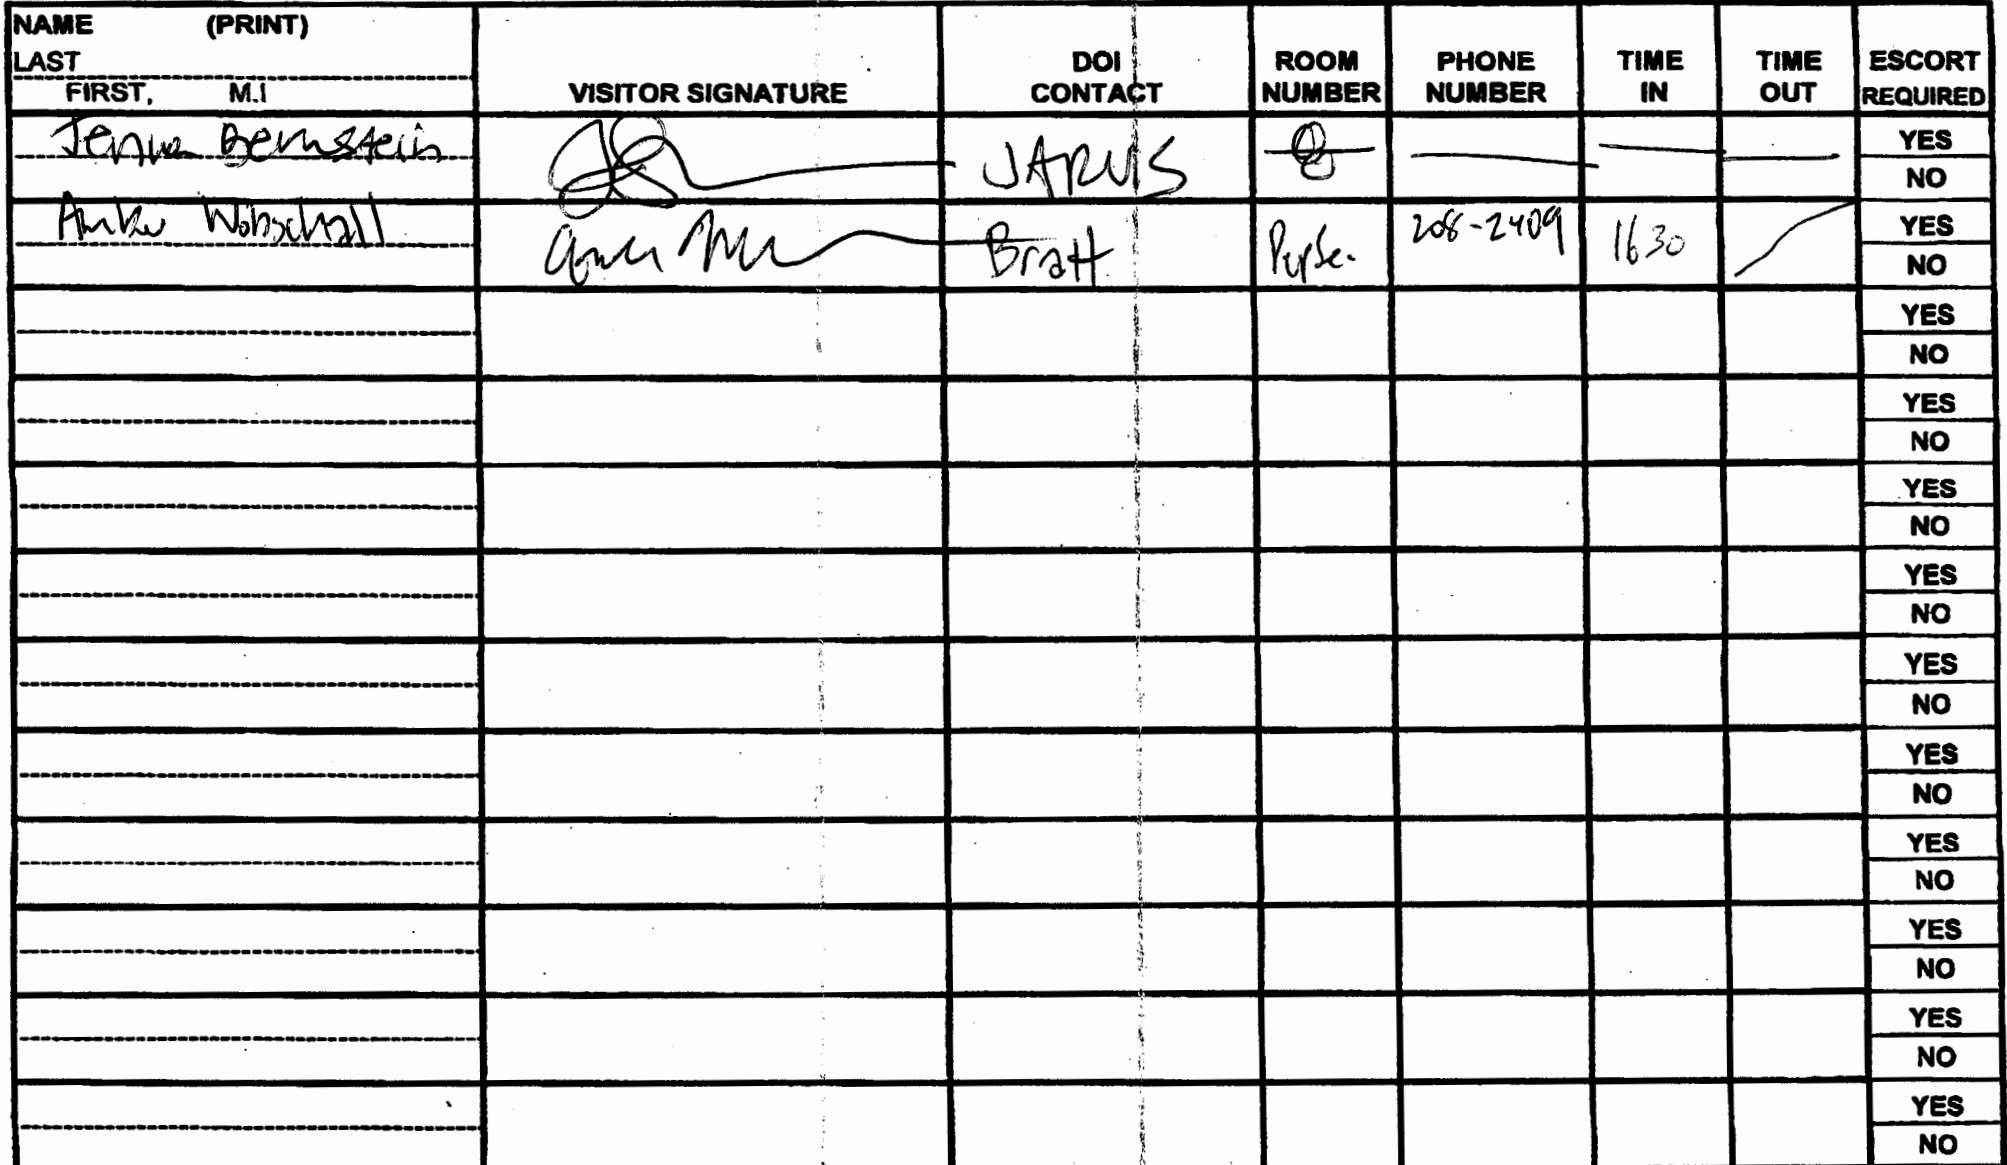 NAME (PRINT)
LAST
FIRST, M.I
VISITOR SIGNATURE
DOI CONTACT
ROOM NUMBER
PHONE NUMBER
TIME IN
TIME OUT
ESCORT REQUIRED
Jenna Bernstein JARVIS YES
NO
Wobschall Bratt 208-2409 1630 YES
NO
YES
NO
YES
NO
YES
NO
YES
NO
YES
NO
YES
NO
YES
NO
YES
NO
YES
NO
YES
NO